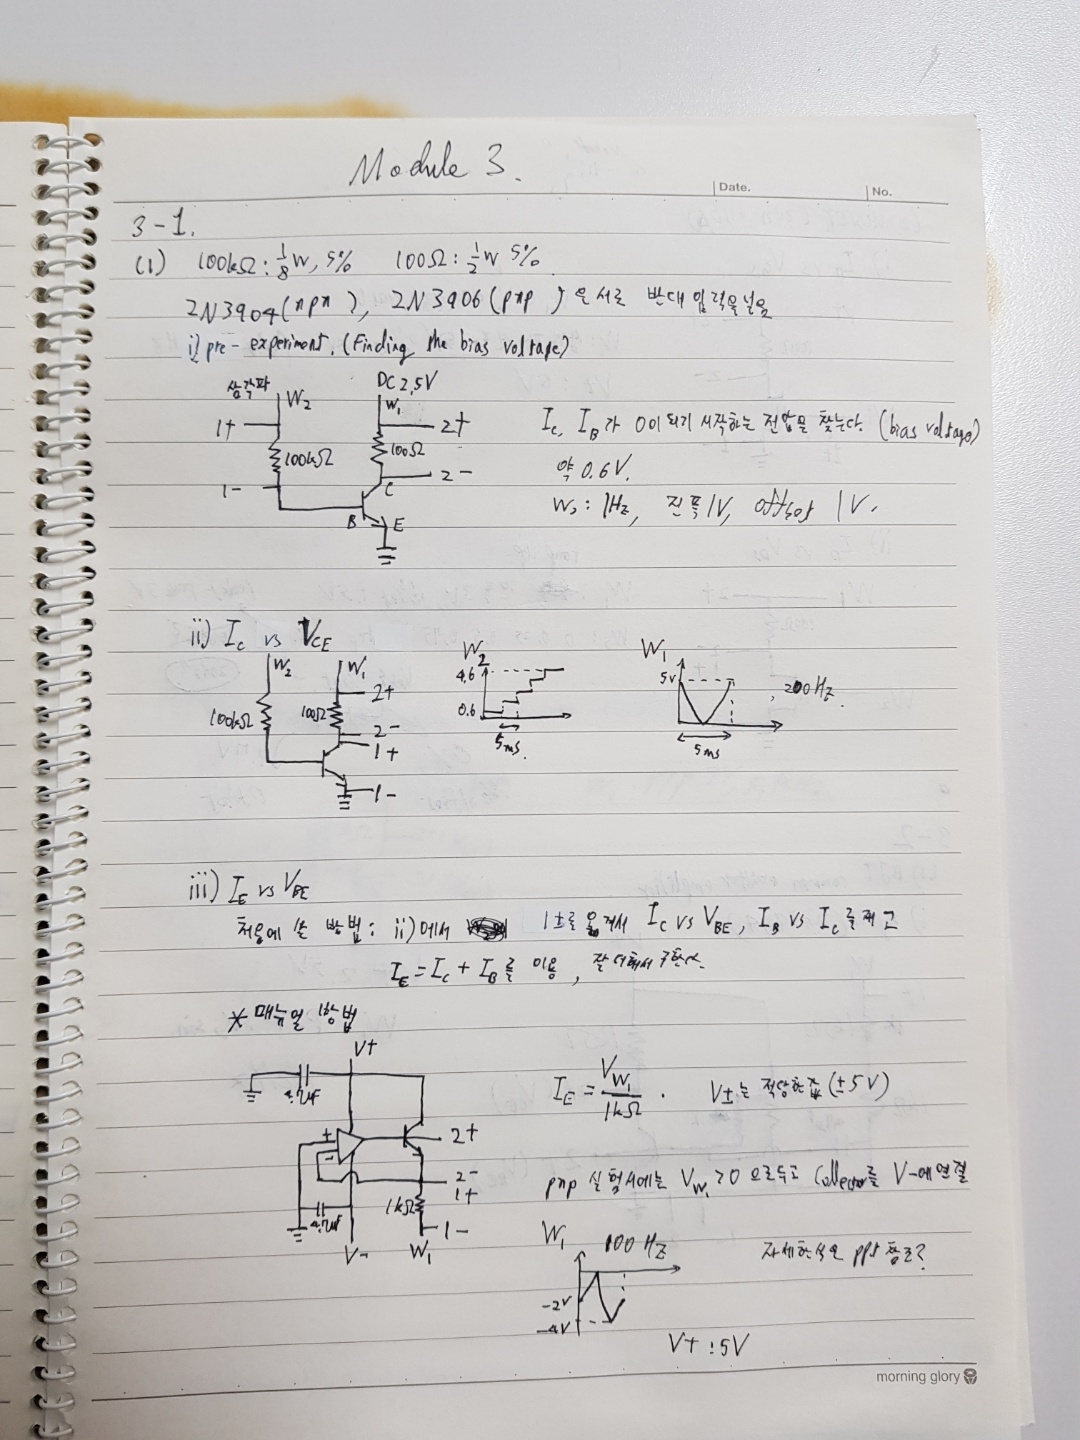 Module 3.
Date.
No.
3-1.
(1) 100kΩ : 1/8 W, 5% 100Ω : 1/2 W 5%
2N3904(npn), 2N3906(pnp) 은 서로 반대 입력을 넣음
i) pre-experiment. (Finding the bias voltage)
삼각파 W2
DC 2.5V
W1
1+
2+
100kΩ
100Ω
1-
2-
C
B
E
Ic, IB가 0이 되기 시작하는 전압을 찾는다. (bias voltage)
약 0.6V.
W2 : 1Hz, 진폭 1V, offset 1V.
ii) Ic vs VCE
W2
W1
2+
100kΩ
100Ω
2-
1+
1-
W2
4.6
0.6
5ms.
W1
5V
, 200Hz.
5ms
iii) IE vs VBE
처음에 쓴 방법 : ii)에서 1±로 옮겨서 Ic vs VBE, IB vs Ic를 재고
IE = Ic + IB를 이용, 잘 더해서 구한다.
* 매뉴얼 방법
V+
4.7uF
+
-
2+
2-
1+
1kΩ
1-
4.7uF
V-
W1
IE = VW1/1kΩ . V±는 적당한 값 (±5V)
pnp 실험시에는 VW1 > 0 으로 두고 Collector를 V-에 연결
W1 100 Hz
-2V
-4V
V+ : 5V
자세한 식은 ppt 참조?
morning glory